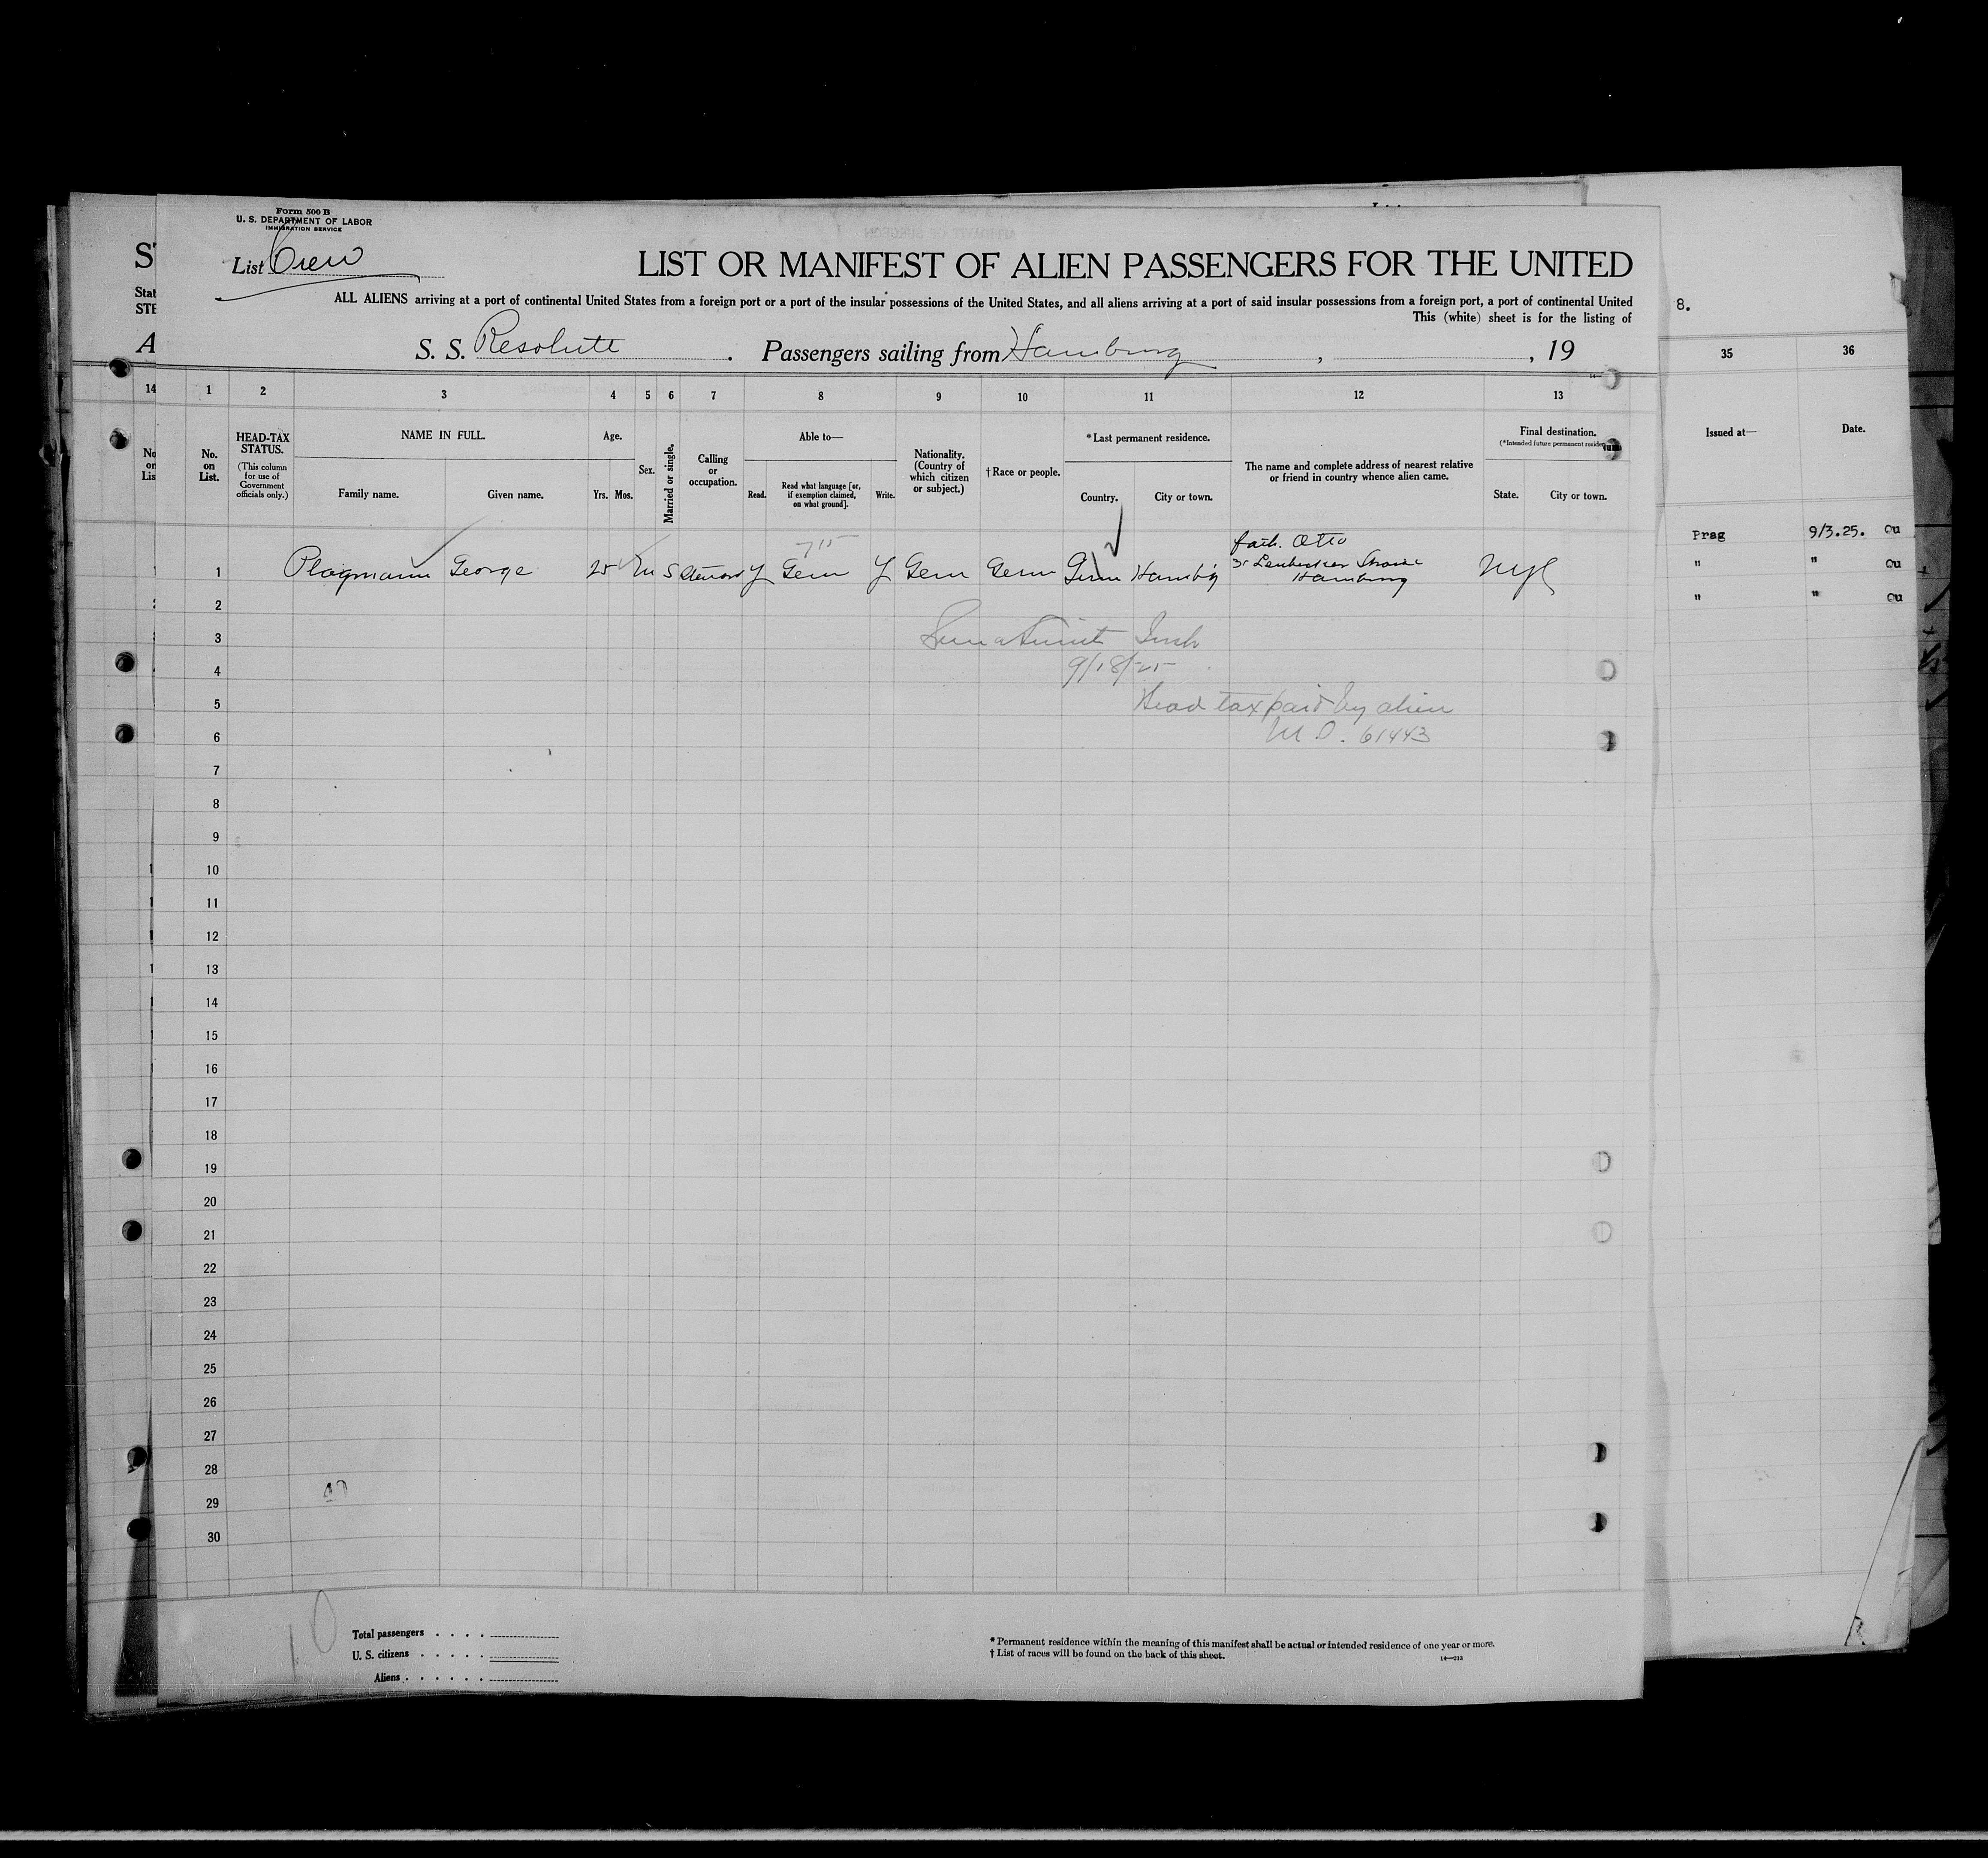 Form 500 B
U. S. DEPARTMENT OF LABOR
IMMIGRATION SERVICE
List Crew
LIST OR MANIFEST OF ALIEN PASSENGERS FOR THE UNITED
ALL ALIENS arriving at a port of continental United States from a foreign port or a port of the insular possessions of the United States, and all aliens arriving at a port of said insular possessions from a foreign port, a port of continental United
This (white) sheet is for the listing of
S. S. Resolute . Passengers sailing from Hamburg , , 19
Stat
STE
A
8.
14 1 2 3 4 5 6 7 8 9 10 11 12 13 35 36
No. on List.
HEAD-TAX STATUS.
(This column for use of Government officials only.)
NAME IN FULL.
Family name. Given name.
Age.
Yrs. Mos.
Sex.
Married or single.
Calling or occupation.
Able to—
Read. Read what language [or, if exemption claimed, on what ground]. Write.
Nationality. (Country of which citizen or subject.)
†Race or people.
*Last permanent residence.
Country. City or town.
The name and complete address of nearest relative or friend in country whence alien came.
Final destination.
(*Intended future permanent residence)
State. City or town.
Issued at— Date.
715
fath. Otto
1 Plagmann George 25 M S Y Germ Y Germ Germ Germ Hambg Hamburg NYC
Prag 9/3.25. Cu
" " Cu
" " Cu
2
3
9/18/25
4
Head tax paid by alien
5
M.O. 61443
6
7
8
9
10
11
12
13
14
15
16
17
18
19
20
21
22
23
24
25
26
27
28
29
30
10
Total passengers . . . .
U. S. citizens . . . . .
Aliens . . . . . .
* Permanent residence within the meaning of this manifest shall be actual or intended residence of one year or more.
† List of races will be found on the back of this sheet.
14—213